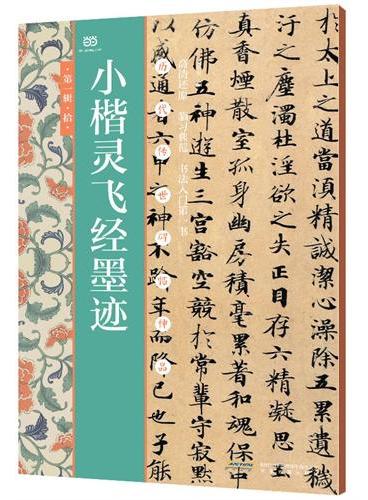 当当
·第一辑·拾·
小楷灵飞经墨迹
历代传世碑帖神品
书法入门第一书
於太上之道當湏精誠潔心澡除五累遺穢
汙之塵濁杜淫欲之失正目存六精凝思玉
真香煙散室孤身幽房積毫累著和魂保中
仿佛五神遊生三宮豁空競於常輩守寂默
以感通者六甲之神不踰年而降已也子能